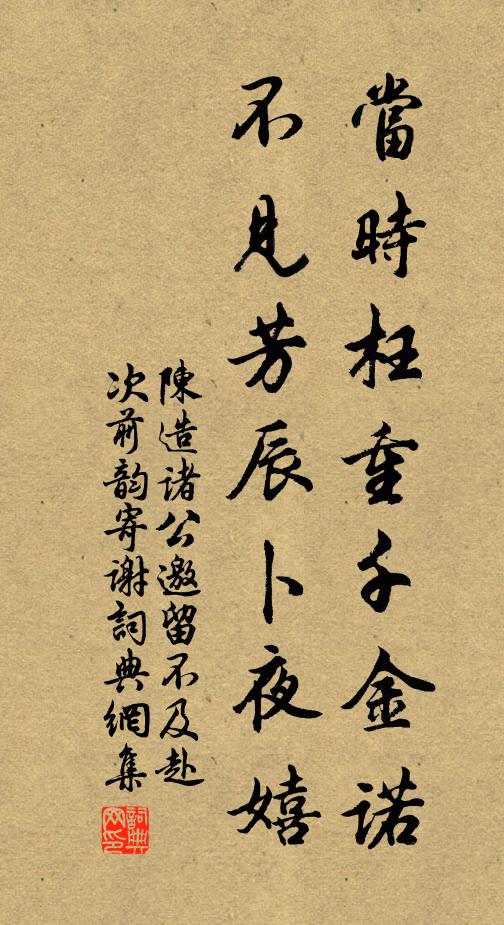 當時枉重千金諾
不見芳辰卜夜嬉
陳造諸公邀留不及赴
次前韵寄谢詞典網集
詞典网印